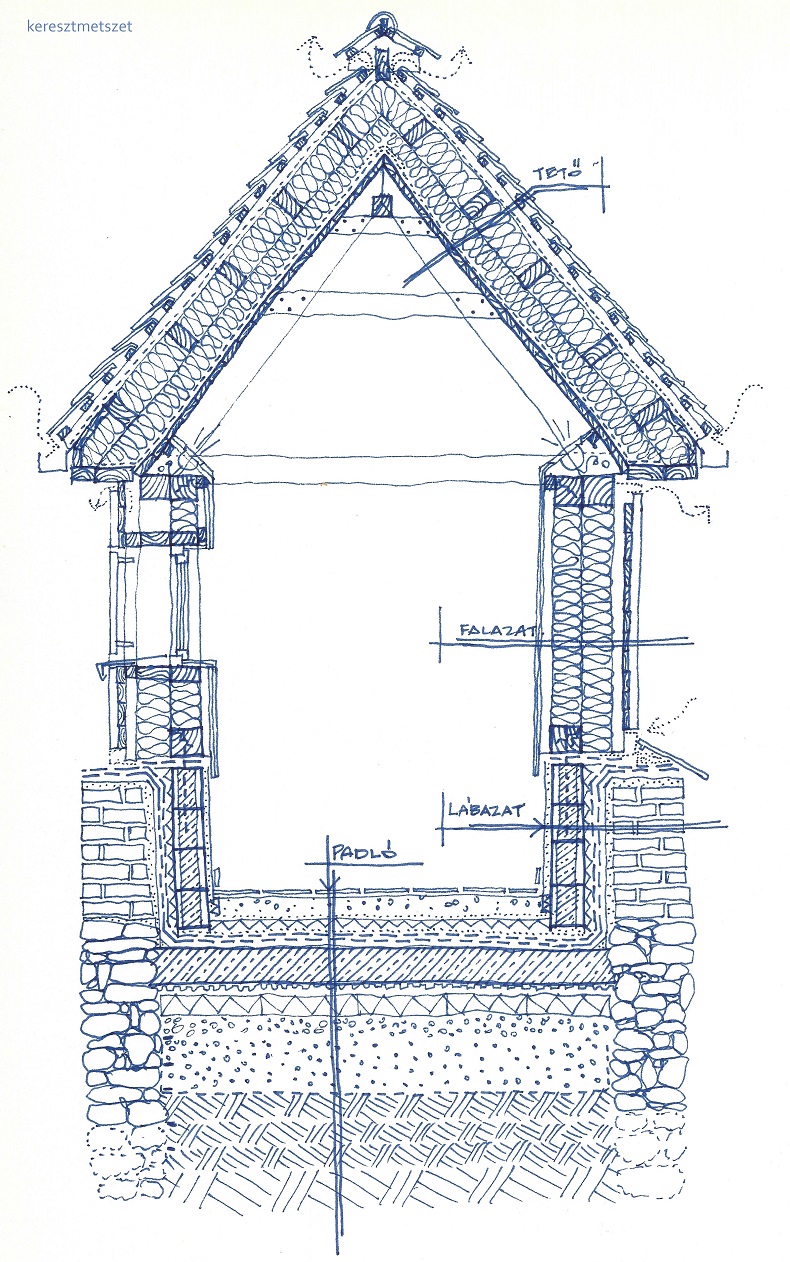 keresztmetszet
TETŐ
FALAZAT
LÁBAZAT
PADLÓ